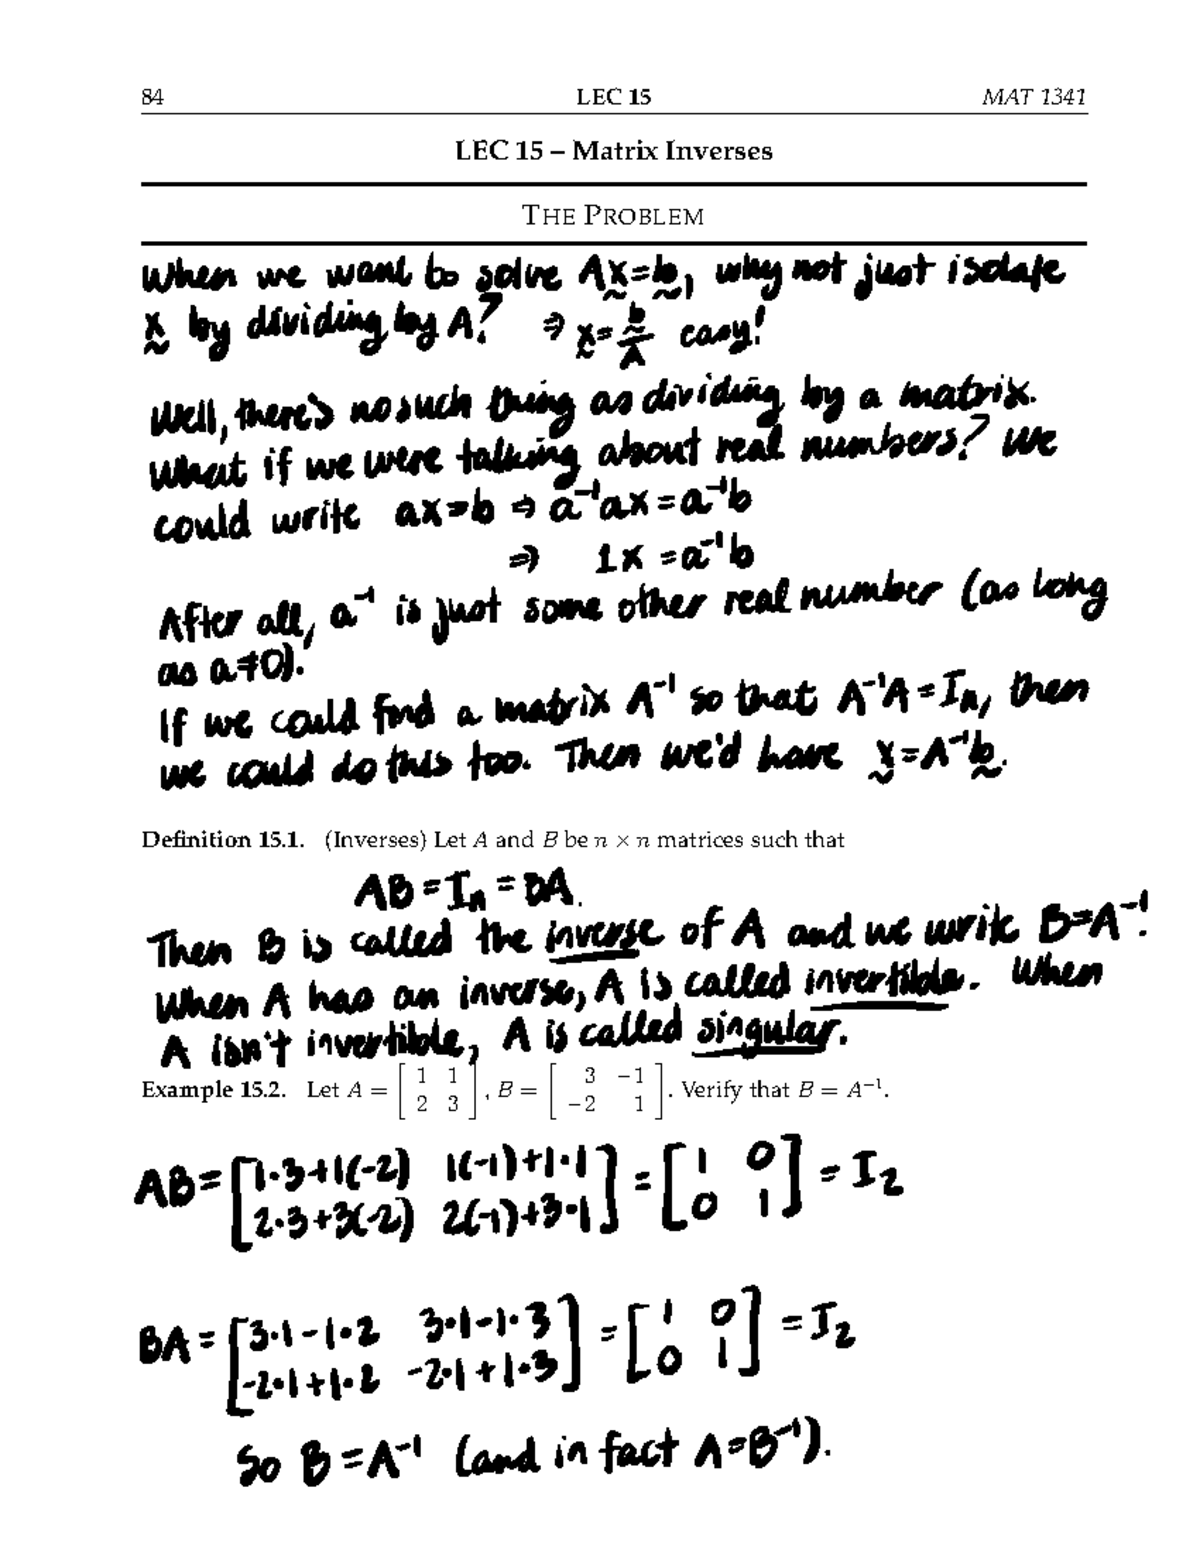 84 LEC 15 MAT 1341
LEC 15 – Matrix Inverses
THE PROBLEM
When we want to solve Ax=b, why not just isolate
x by dividing by A? ⇒ x = b/A easy!
Well, there's no such thing as dividing by a matrix.
What if we were talking about real numbers? We
could write ax=b ⇒ a⁻¹ax = a⁻¹b
⇒ 1x = a⁻¹b
After all, a⁻¹ is just some other real number (as long
as a≠0).
If we could find a matrix A⁻¹ so that A⁻¹A = Iₙ, then
we could do this too. Then we'd have x = A⁻¹b.
Definition 15.1. (Inverses) Let A and B be n × n matrices such that
AB = Iₙ = BA.
Then B is called the inverse of A and we write B=A⁻¹.
When A has an inverse, A is called invertible. When
A isn't invertible, A is called singular.
Example 15.2. Let A = [1 1; 2 3], B = [3 −1; −2 1]. Verify that B = A⁻¹.
AB = [1·3+1(-2) 1(-1)+1·1; 2·3+3(-2) 2(-1)+3·1] = [1 0; 0 1] = I₂
BA = [3·1-1·2 3·1-1·3; -2·1+1·2 -2·1+1·3] = [1 0; 0 1] = I₂
So B = A⁻¹ (and in fact A=B⁻¹).